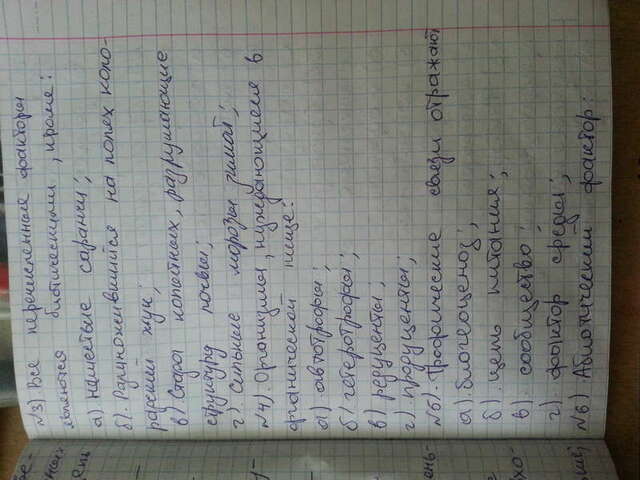 №3) Все перечисленные факторы
являются биотическими, кроме:
а) нашествие саранчи;
б). Размножившийся на полях коло-
радский жук;
в) Стада копытных, разрушающие
структуру почвы;
г). Сильные морозы зимой;
№4). Организмы, нуждающиеся в
органической пище:
а). автотрофы;
б) гетеротрофы;
в) редуценты;
г). продуценты;
№5). Трофические связи отражают
а). биогеоценоз;
б). цепь питания;
в). сообщество;
г). фактор среды;
№6) Абиотический фактор: